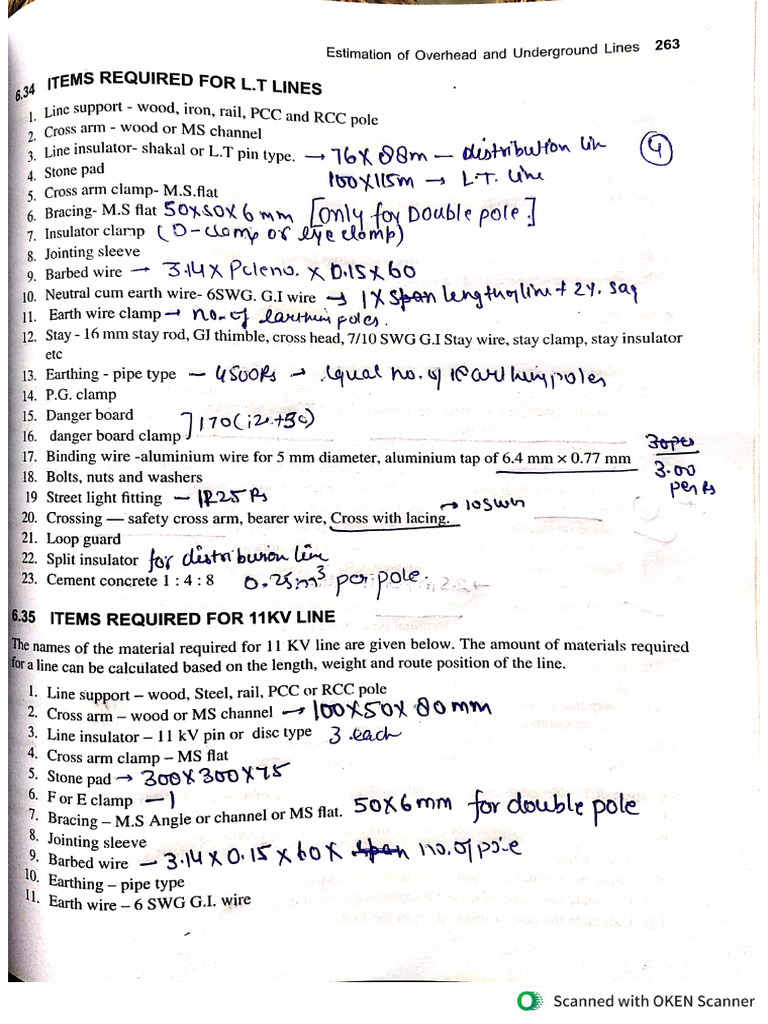 Estimation of Overhead and Underground Lines 263
6.34 ITEMS REQUIRED FOR L.T LINES
1. Line support - wood, iron, rail, PCC and RCC pole
2. Cross arm - wood or MS channel
3. Line insulator- shakal or L.T pin type. → 76 X 88m — distribution lin
4
4. Stone pad 100X115m → L.T. line
5. Cross arm clamp- M.S.flat
6. Bracing- M.S flat 50X50X6mm [only for Double pole.]
7. Insulator clamp (D-clamp or eye clamp)
8. Jointing sleeve
9. Barbed wire → 3.14 X Poleno. X 0.15 X 60
10. Neutral cum earth wire- 6SWG. G.I wire → 1 X span length of line + 2%. sag
11. Earth wire clamp → no. of earthin poles.
12. Stay - 16 mm stay rod, GJ thimble, cross head, 7/10 SWG G.I Stay wire, stay clamp, stay insulator
etc
13. Earthing - pipe type — 4500Rs → equal no. of earthin poles
14. P.G. clamp
15. Danger board
]170(120+50)
16. danger board clamp
17. Binding wire -aluminium wire for 5 mm diameter, aluminium tap of 6.4 mm × 0.77 mm
3.00
18. Bolts, nuts and washers
19 Street light fitting — 1225 Rs
→ 10SWG
20. Crossing — safety cross arm, bearer wire, Cross with lacing.
21. Loop guard
22. Split insulator for distribution line
23. Cement concrete 1 : 4 : 8 0.25m³ per pole.
6.35 ITEMS REQUIRED FOR 11KV LINE
The names of the material required for 11 KV line are given below. The amount of materials required
for a line can be calculated based on the length, weight and route position of the line.
1. Line support – wood, Steel, rail, PCC or RCC pole
2. Cross arm – wood or MS channel → 100X50X80mm
3. Line insulator – 11 kV pin or disc type 3 each
4. Cross arm clamp – MS flat
5. Stone pad → 300X300X75
6. F or E clamp — 1
7. Bracing – M.S Angle or channel or MS flat. 50X6mm for double pole
8. Jointing sleeve
9. Barbed wire — 3.14 X 0.15 X 60 X span no. of pole
10. Earthing – pipe type
11. Earth wire – 6 SWG G.I. wire
Scanned with OKEN Scanner